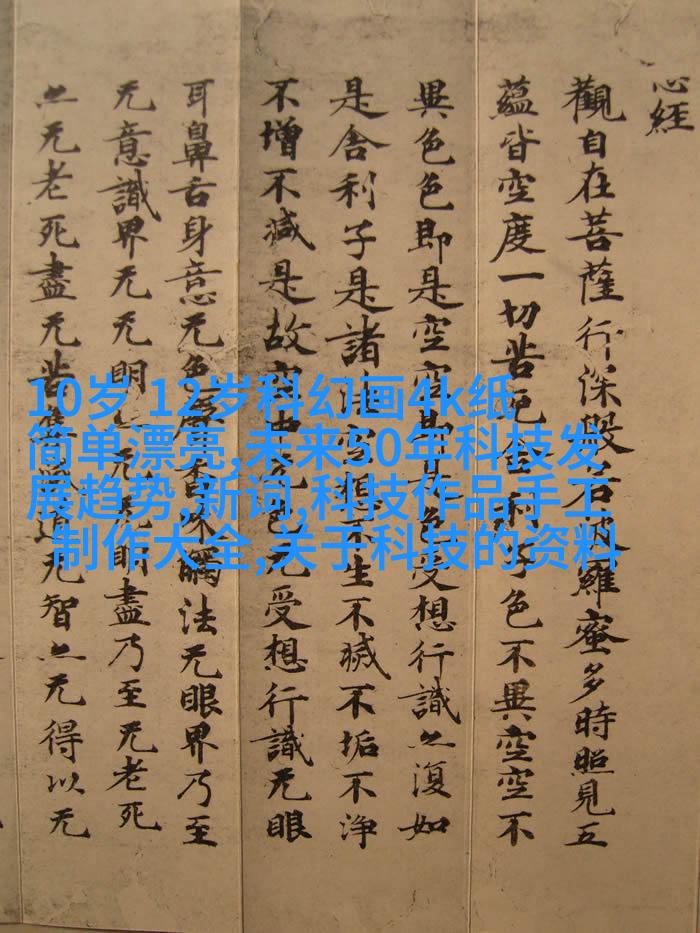 心經
觀自在菩薩行深般若波羅蜜多時照見五
蘊皆空度一切苦厄舍利子色不異空空不
異色色即是空空即是色受想行識亦復如
是舍利子是諸法空想不生不滅不垢不淨
不增不減是故空中无色无受想行識无眼
耳鼻舌身意无色聲香味觸法无眼界乃至
无意識界无无明亦无无明盡乃至无老死
亦无老死盡无苦集滅道无智亦无得以无
10岁 12岁科幻画4k纸
简单漂亮,未来50年科技发
展趋势,新词,科技作品手工
制作大全,关于科技的资料